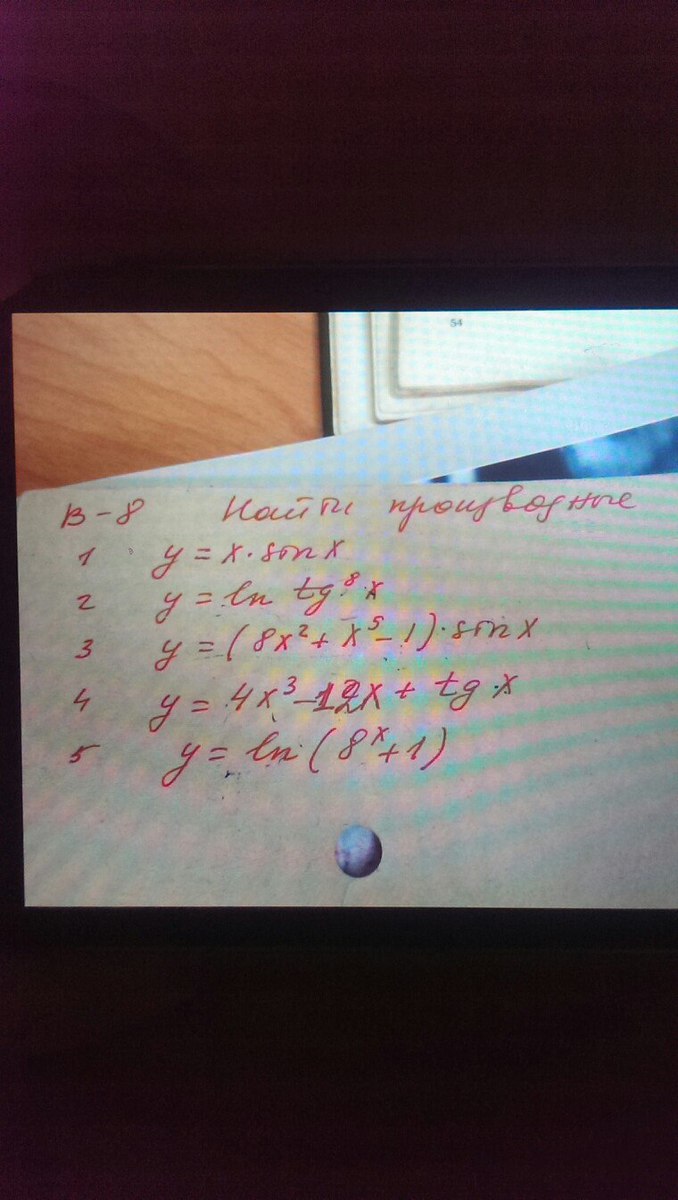 54
В-8 Найти производные
1 y = x·sin x
2 y = ln tg⁸ x
3 y = (8x² + x⁵ - 1)·sin x
4 y = 4x³ - 12x + tg x
5 y = ln (8ˣ + 1)